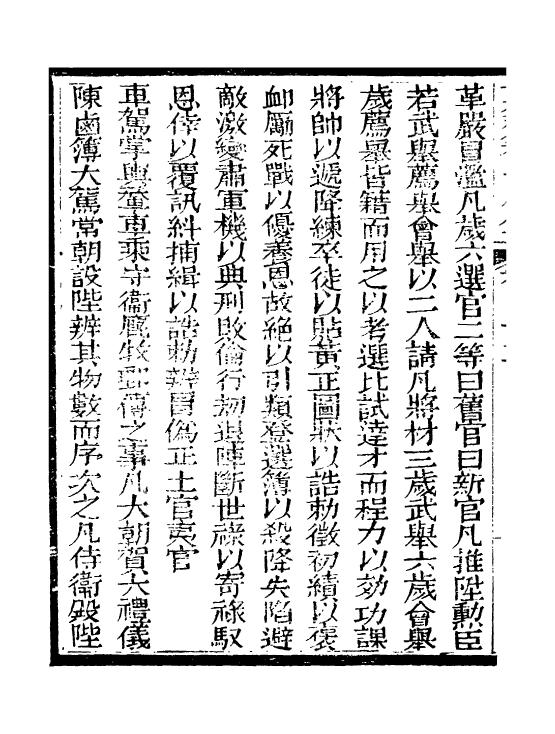 革嚴冒濫凡歲六選官二等曰舊官曰新官凡推陞勳臣
若武舉薦舉會舉以二人請凡將材三歲武舉六歲會舉
歲薦舉皆籍而用之以考選比試達才而程力以効功課
將帥以遞降練卒徒以貼黃正圖狀以誥勅徵初績以褒
卹勵死戰以優養恩故絕以引類登選簿以殺降失陷避
敵激變肅軍機以典刑敗倫行刼退陣斷世祿以寄祿馭
恩倖以覆訊糾捕緝以誥勅辨冒偽正土官夷官
車駕掌輿輦車乘守衞廐牧郵傳之事凡大朝賀大禮儀
陳鹵簿大駕常朝設陛辨其物數而序次之凡侍衞殿陛